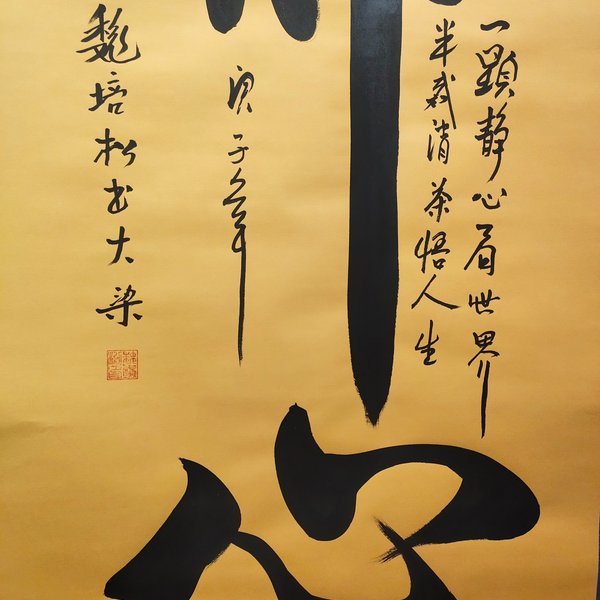 一顆静心看世界
半盏清茶悟人生
心
庚子年
魏培松书大梁